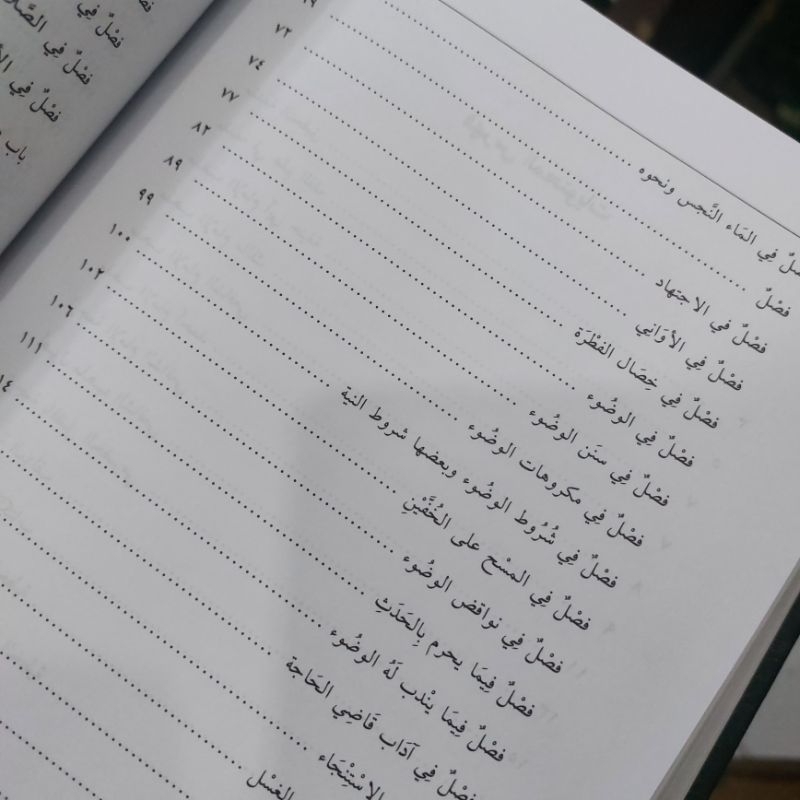 فصْلٌ فِي
فصْلٌ فِي
فصْلٌ فِي
باب
فِي المَاء النَّجس ونحوه
فصْلٌ ٧٢
فصْلٌ في الاجتهاد ٧٤
فصْلٌ فِي الأوَاني ٧٧
فصْلٌ فِي خِصَال الفطْرَة ٨٢
فصْلٌ فِي الوضُوء ٨٩
فصْلٌ فِي سنَن الوضُوء ٩٩
فصْلٌ فِي مكروهات الوضُوء ١٠٠
فصْلٌ فِي شُرُوط الوضُوء وبعضها شروط النية ١٠٢
فصْلٌ فِي المسْح على الخُفَّيْنِ ١٠٦
فصْلٌ فِي نواقض الوضُوء ١١١
فصْلٌ فِيمَا يحرم بِالحَدَثِ
فصْلٌ فِيمَا ينْدب لَهُ الوضُوء
فصْلٌ فِي آدَاب قَاضِي الحَاجة
الاسْتِنْجَاء
الغسْل